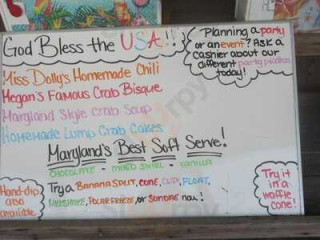 God Bless the USA!!
Planning a party
or an event? Ask a
cashier about our
different party platters
today!
Miss Dolly's Homemade Chili
Megan's Famous Crab Bisque
Maryland Style Crab Soup
Homemade Lump Crab Cakes
Maryland's Best Soft Serve!
CHOCOLATE - MIXED SWIRL - VANILLA
Hand-dip
also
available
Try a BANANA SPLIT, CONE, CUP, FLOAT,
MILKSHAKE, POLAR FREEZE, or SUNDAE now!
Try it
in a
waffle
cone!